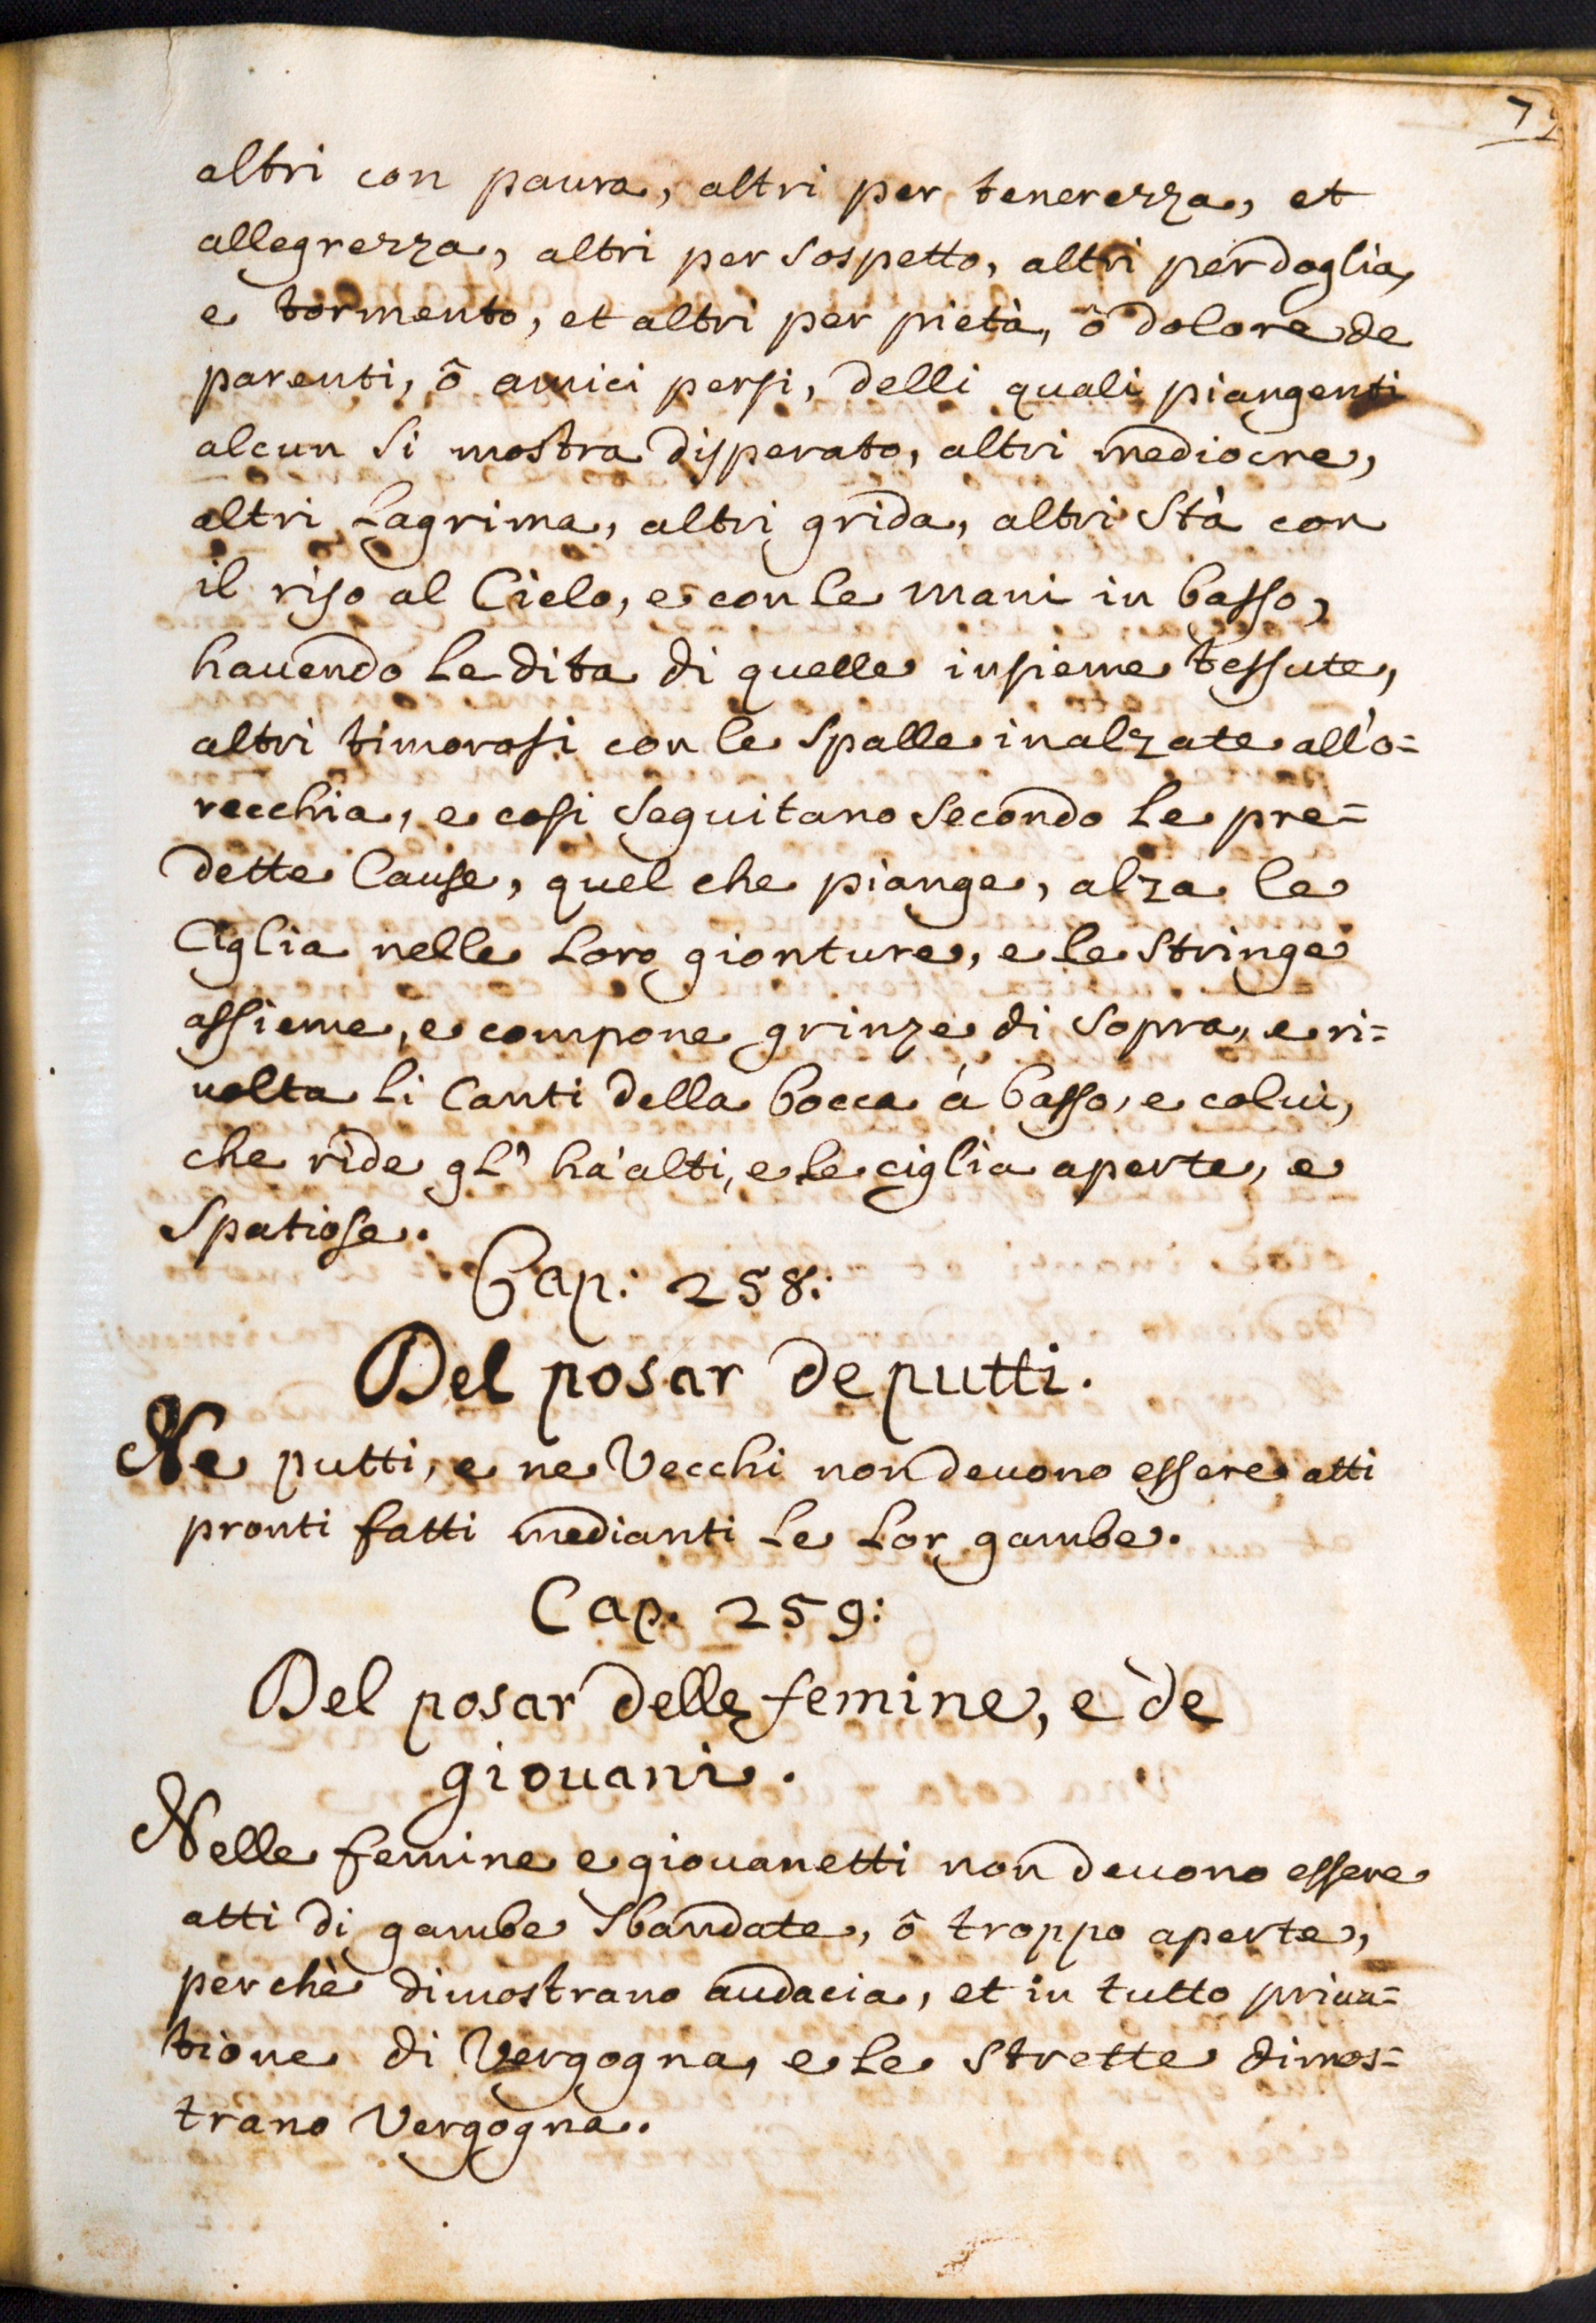 72
altri con paura, altri per tenerezza, et
allegrezza, altri per sospetto, altri per doglia,
e tormento, et altri per pietà, ô dolore de
parenti, ô amici persi, delli quali piangenti
alcun si mostra disperato, altri mediocre,
altri lagrima, altri grida, altri stà con
il riso al Cielo, e con le mani in basso,
hauendo le dita di quelle insieme tessute,
altri timorosi con le spalle inalzate all'o=
recchia, e cosi seguitano secondo le pre=
dette Cause, quel che piange, alza le
Ciglia nelle loro gionture, e le stringe
assieme, e compone grinze di sopra, e ri=
uolta li Canti della bocca à basso, e colui,
che ride gl' hà alti, e le ciglia aperte, e
spatiose.
Cap: 258:
Del posar de putti.
Ne putti, e ne Vecchi non deuono essere atti
pronti fatti medianti le lor gambe.
Cap. 259:
Del posar delle femine, e de
giouani.
Nelle femine e giouanetti non deuono essere
atti di gambe sbandate, ô troppo aperte,
perchè dimostrano audacia, et in tutto priua=
tione di Vergogna, e le strette dimos=
trano Vergogna.